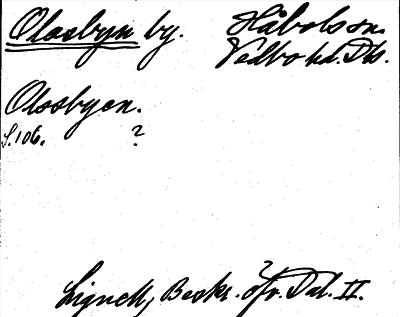 Olasbyn by. Håbols sn.
Vedbo hd. Dls.
Olosbyen.
S. 106. ?
Lignell, Beskr. öfv. Dal. II.